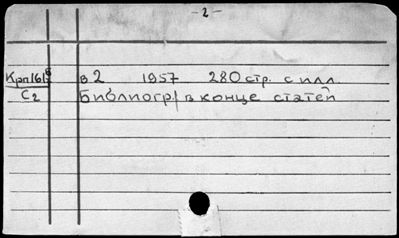 - 2 -
в 2 1957 280 стр. с илл.
С2 Библиогр. в конце статей